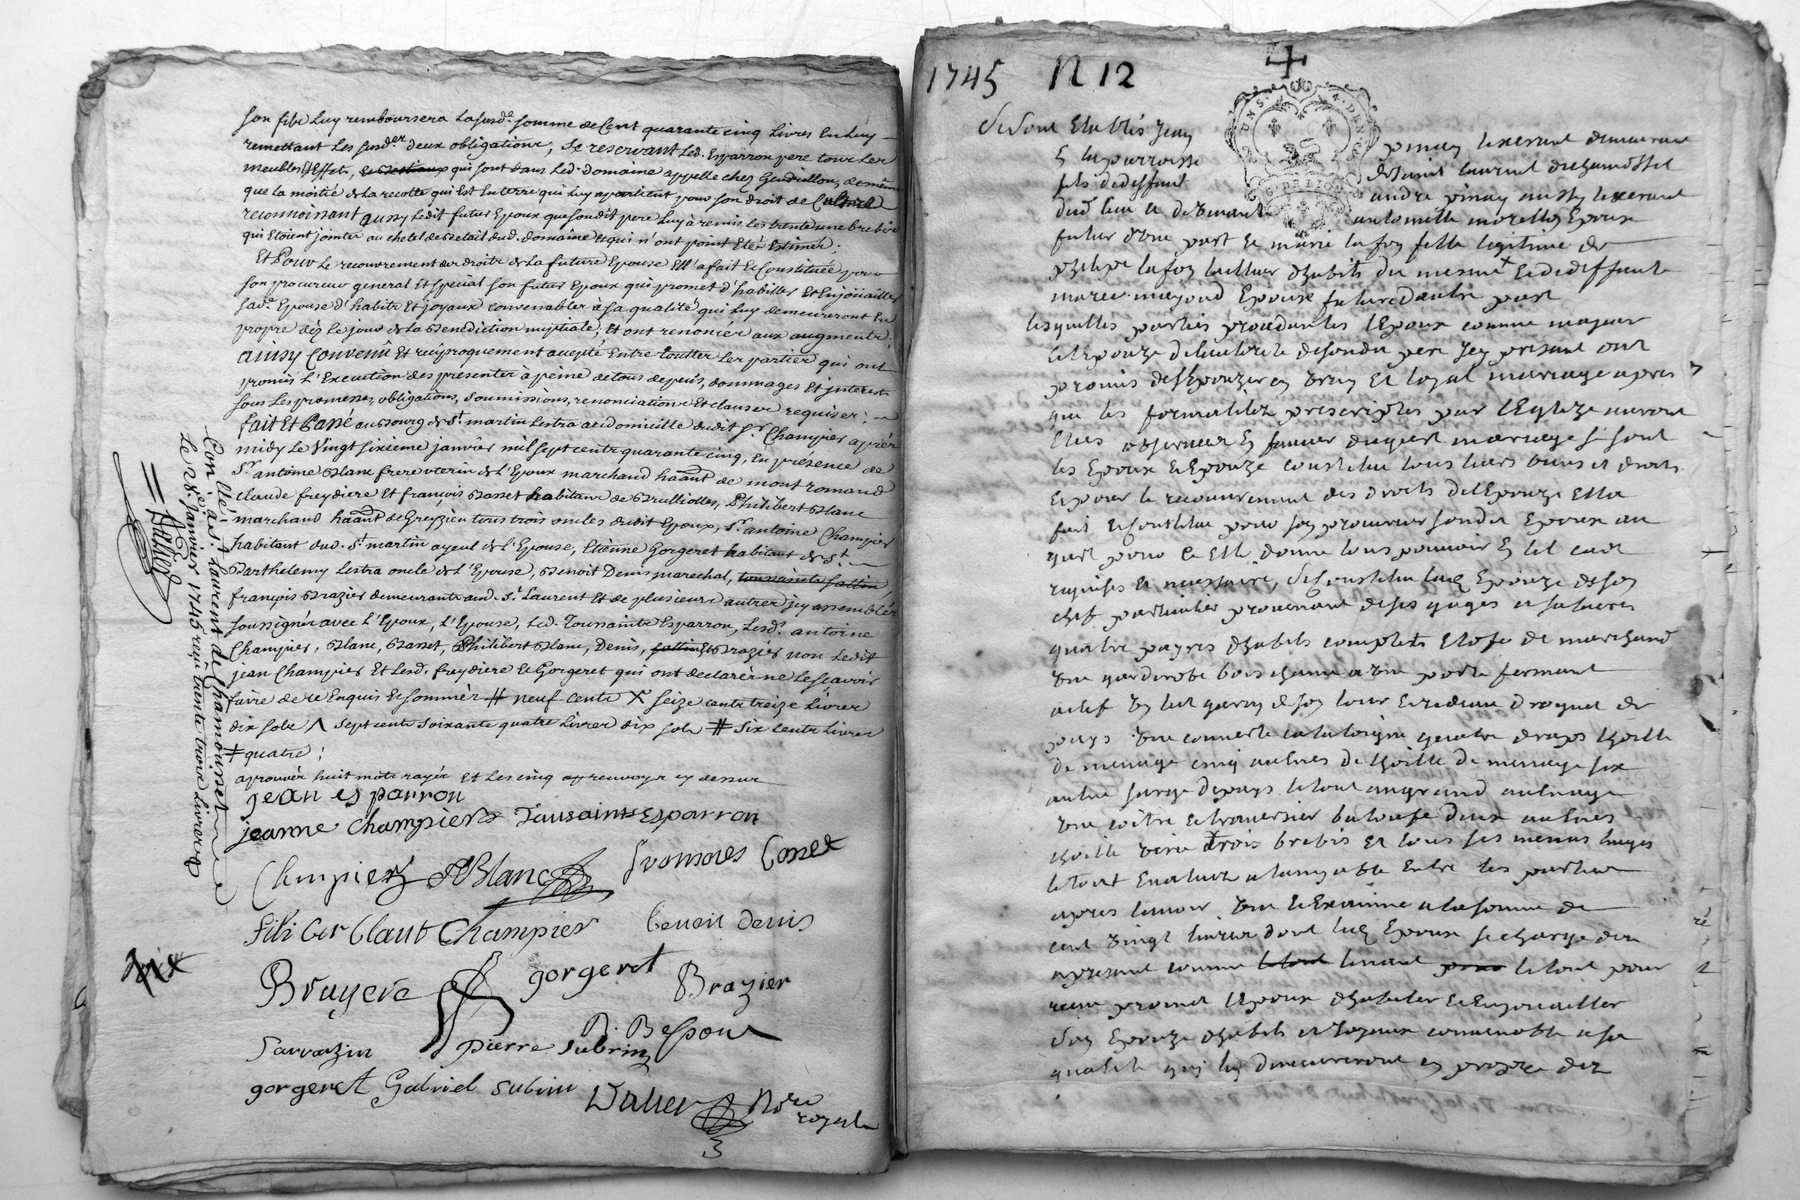 son fils Luy remboursera La susd.e somme de Cent quarante cinq Livres En Luy
remettant Les susd.es deux obligations, Se reservant Led. Esparron pere tous Les
meubles Et Effets, qui sont dans Led. domaine appellé chez Gendrillon, de même
que la moitié de La recolte qui Est En terre qui Luy apartient pour son droit de Culture
reconnoissant aussy Ledit futur Epoux que son dit pere Luy a remis Les trente une brebis
qui Etoient jointes au chetel de Betail dud. domaine Et qui n'ont point Eté Estimés.
Et Pour Le recouvrement des droits de La future Epouse Ell'a fait Et Constitué pour
son procureur general Et special son futur Epoux qui promet d'habiller Et Enjoüailler
sad.e Epouse d'habits Et joyaux convenables à sa qualité qui Luy demeureront En
propre déz le jour de La Benediction nuptiale, Et ont renoncés aux augments.
ainsy Convenû Et reciproquement accepté Entre touttes Les parties qui ont
promis L'Execution des présentes à peine de tous depens, dommages Et interets
sous Les promesses, obligations, soumissions, renonciations Et clauses requises;
fait Et Passé au Bourg de St. martin Lestra au domicille dudit Sr. Champier après
midy Le Vingt sixieme janvier mil sept cents quarante cinq, En présence de
Sr. antoine Blanc frere uterin de L'Epoux marchand haânt de montromand
claude freydiere Et françois Basset habitans de Brulliolles, Philibert Blanc
marchand haânt de Grezieu tous trois oncles dudit Epoux, Sr. antoine Champier
habitant dud. St. martin ayeul de L'Epouse, Etienne Gorgeret habitant de St.
Barthelemy Lestra oncle de L'Epouse, Benoit Denis marechal,
françois Brazier demeurants aud. St. Laurent Et de plusieurs autres jcy assemblés
soussignés avec L'Epoux, L'Epouse, Led. Toussaints Esparron, Lesd. antoine
Champier, Blanc, Basset, Philibert Blanc, Denis, Et Brazier non Ledit
jean Champier Et Lesd. freydiere Et Gorgeret qui ont declarés ne Le sçavoir
faire de ce Enquis Et sommés # neuf cents X seize cents treize Livres
dix sols Λ sept cents soixante quatre Livres dix sols # Six cents Livres
≠ quatre;
aprouvés huit mots rayés Et Les cinq apreuvoys cy dessus
jean esparron
jeanne Champier Tausaints Esparron
Champier Blanc
filiber Blanc Champier Benoit denis
Bruyere gorgeret Brazier
Sarrazin pierre subrin
gorgeret Gabriel subrin
Nore
royal
Con.llé à St. Laurent de Chamousset
Le 28e janvier 1745 reçu trente trois Livres
1745 N 12
DE LION
Se sont Etablis Jean pinay tixerant demeurant
En la parroisse de saint laurent de chamosset
fils de deffunt andre pinay aussy tixerant
dud. lieu et de vivante antoinette
futur d'une part et marie lafoy fille legitime de
lafoy tailleur d'habits du mesme et de deffunte
Epouse future d'autre part
lesquelles parties procedantes l'Epoux comme majeur
et l'Epouze de l'autorité de son dit pere Jcy present ont
promis de s'Epouzer en vray et loyal mariage apres
que les formalitez prescriptes par l'Eglize auront
Etées observées En faveur duquel mariage se sont
les Epoux et Epouze constitué tous leurs biens et droits
Et pour le recouvrement des droits de l'Epouze Ella
fait et constitué pour son procureur son dit Epoux au
quel pour ce Elle donne tous pouvoir En tel cas
requis et necessaire, Se constitue lad. Epouze de son
chef particulier provenant de ses gages et salaires
quatre payres d'habits complets Etofe de marchand
une garderobe bois a une porte fermant
a clef un lit garny de son tour et rideau droguet de
pays une couverte catalogne quatre draps thoille
de menage cinq aulnes de thoille de menage six
aulne sarge de pays le tout au grand aulnage
thoille trois brebis et tous ses menus linges
le tout Evalué a l'amyable Entre les parties
apres l'avoir vue et Examiné a la somme de
cent vingt livres dont led. Epoux se charge des
a present comme tenant le tout pour
reçu promet l'Epoux d'habiller et Enjouailler
son Epouze d'habits et Joyaux convenable a sa
qualité qui luy demeureront En propre dez